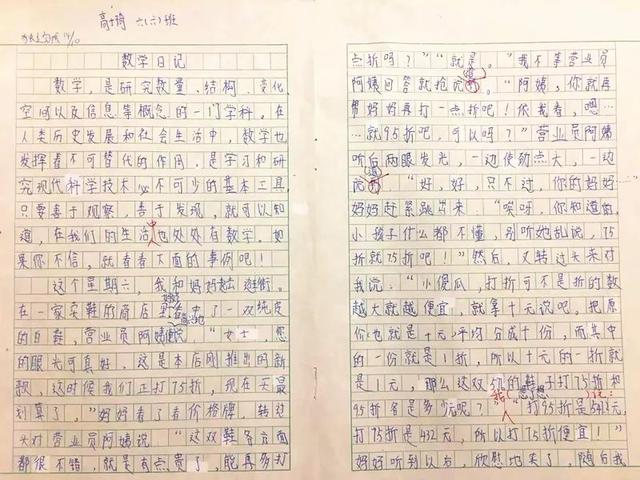 高 琦 六(六)班
数学日记
数学，是研究数量、结构、变化、
空间以及信息等概念的一门学科。在
人类历史发展和社会生活中，数学也
发挥着不可替代的作用，是学习和研
究现代科学技术必不可少的基本工具。
只要善于观察，善于发现，就可以知
道，在我们的生活中也处处有数学。如
果你不信，就看看下面的事例吧！
这个星期六，我和妈妈去逛街。
在一家卖鞋的商店里 了一双纯皮
的白鞋，营业员阿姨 说："女士，您
的眼光可真好，这是本店刚推出的新
款，这时候我们正打75折，现在买最
划算了。"妈妈看了看价格牌，转过
头对营业员阿姨说："这双鞋各方面
都很不错，就是有点贵了，能再多打
点折吗？""就是。"我不等营业员
阿姨回答就抢说道。"阿姨，你就再
帮妈妈再打一点折吧！依我看，嗯…
…就95折吧，可以吗？"营业员阿姨
听后两眼发光，一边使劲点头，一边
说道："好，好，只不过，你的妈妈…"
妈妈赶紧跳出来："哎呀，你知道的，
小孩子什么都不懂，别听她乱说，75
折就75折吧！"然后，又转过头来对
我说："小傻瓜，打折可不是折的数
越大就越便宜，就拿十元说吧。把原
价也就是十元平均分成十份，而其中
的一份就是1折，所以十元的一折就
是1元，那么这双 的鞋子打75折和
95折各是多少元呢？"我想想说："打95折是543元，
打75折是432元，所以打75折便宜！"
妈妈听到以后，欣慰地笑了，随后我